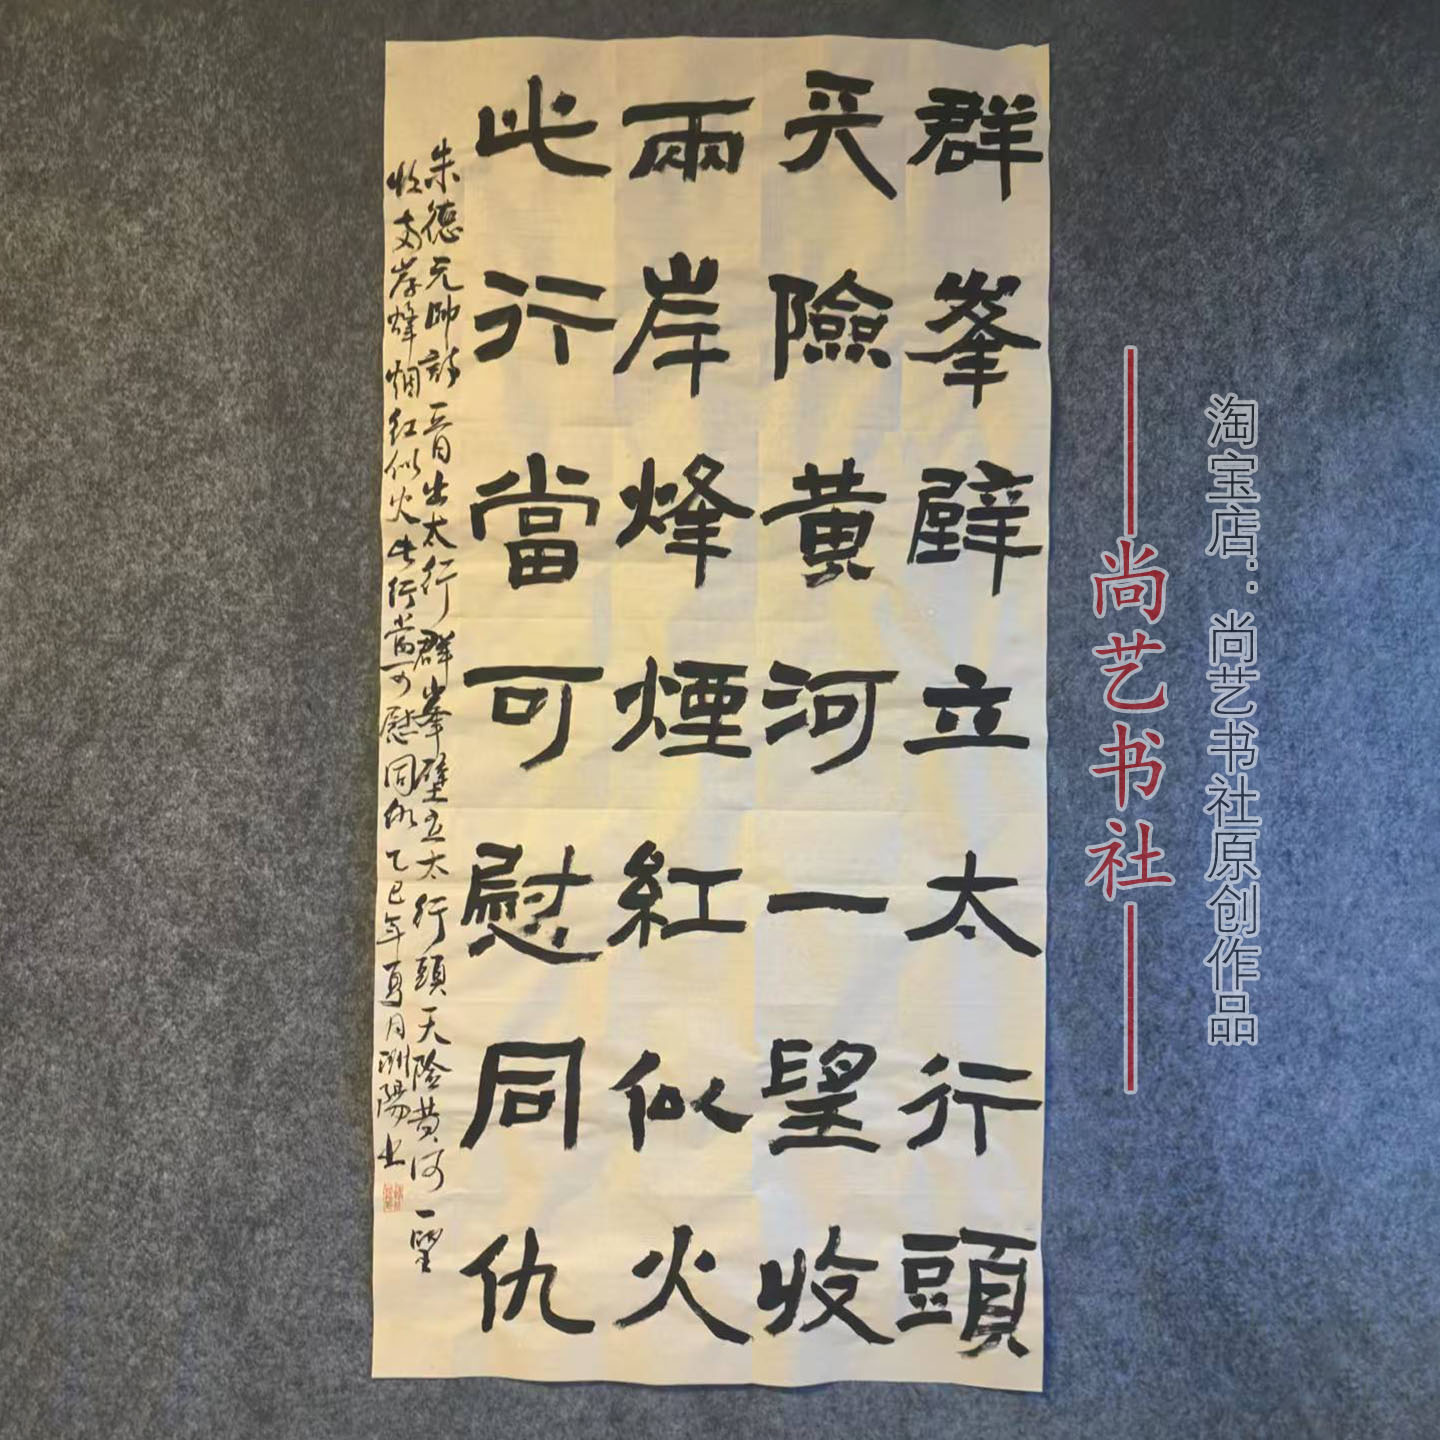 群峯壁立太行頭
天險黄河一望收
兩岸烽煙紅似火
此行當可慰同仇
朱德元帥詩 五月出太行 群峯壁立太行頭 天險黄河一望
收 两岸烽烟红似火 此行当可慰同仇 乙巳年夏月洲陽书
尚艺书社
淘宝店：尚艺书社原创作品